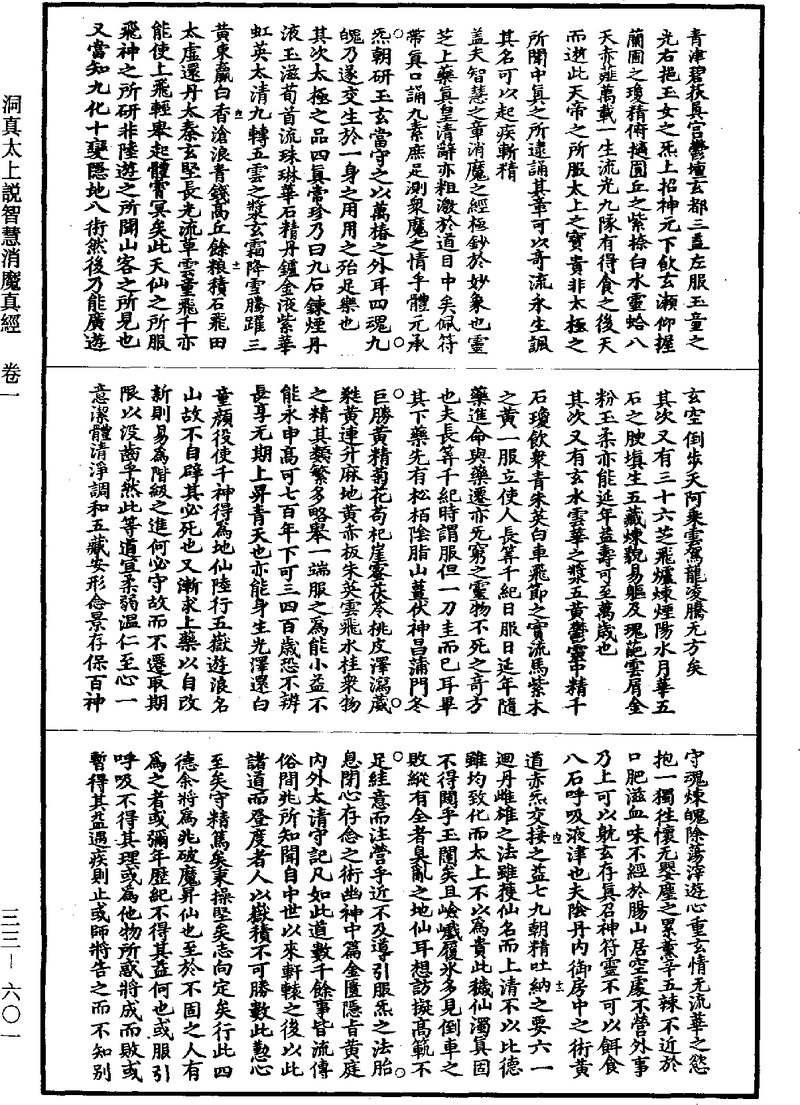 洞真太上説智慧消魔真經　卷一
三三—六〇一
青津碧荻眞宫鬱壇玄都三蓋左服玉童之
光右挹玉女之炁上招神元下飲玄瀬仰握
蘭圃之瓊精俯掇圓丘之紫柰白水靈蛤八
天赤薤萬載一生流光九隊有得食之後天
而逝此天帝之所服太上之寶貴非太極之
所聞中眞之所逮誦其章可以奇流永生諷
其名可以起疾斬精
蓋夫智慧之章消魔之經極鈔於妙象也靈
芝上藥眞皇清辭亦粗激於道目中矣佩符
帶眞口誦九素庶足測衆魔之情乎體元承
炁朝研玉玄當守之以萬椿之外耳四魂九
魄乃遂交生於一身之用用之殆足樂也
其次太極之品四眞常珍乃曰九石鍊煙丹
液玉滋荀首流珠琳華石精丹鑪金液紫華
虹英太清九轉五雲之漿玄霜降雪騰躍三
黄東瀛白香滄浪青錢高丘餘粮積石飛田
太虚還丹太泰玄堅長光流草雲童飛千亦
能使上飛輕舉起體霄冥矣此天仙之所服
飛神之所研非陸遊之所聞山客之所見也
又當知九化十變隱地八術然後乃能廣遊
玄空倒步天阿乘雲駕龍凌騰无方矣
其次又有三十六芝飛爐煉煙陽水月華五
石之腴填生五藏煉貌易軀及瑰葩雲屑金
粉玉柔亦能延年益壽可至萬歲也
其次又有玄水雲華之漿五黄鬱靈中精千
石瓊飲衆青朱英白車飛節之寶流馬紫木
之黄一服立使人長筭千紀日服日延年隨
藥進命與藥遷亦无窮之靈物不死之奇方
也夫長筭千紀時謂服但一刀圭而已耳畢
其下藥先有松栢陰脂山薑伏神昌蒲門冬
巨勝黄精菊花苟杞崖蜜茯苓桃皮澤瀉葳
蕤黄連升麻地黄赤板朱英雲飛水桂衆物
之精其類繁多略舉一端服之爲能小益不
能永申高可七百年下可三四百歲恐不辨
長享无期上昇青天也亦能身生光澤還白
童顔役使千神得爲地仙陸行五嶽遊浪名
山故不自辟其必死也又漸求上藥以自改
新則易爲階級之進何必守故而不遷取期
限以没齒乎然此等道宜柔弱温仁至心一
意潔體清淨調和五藏安形念景存保百神
守魂煉魄除蕩滓遊心重玄情无流華之慾
抱一獨往懷无嬰塵之累薰辛五辣不近於
口肥滋血味不經於腸山居空處不營外事
乃上可以躭玄存眞召神符靈不可以餌食
八石呼吸液津也夫陰丹内御房中之術黄
道赤炁交接之益七九朝精吐納之要六一
迴丹雌雄之法雖獲仙名而上清不以比德
雖均致化而太上不以爲貴此穢仙濁眞固
不得闚乎玉闈矣且嶮巇履氷多見倒車之
敗縱有全者臭亂之地仙耳想訪擬高範不
足絓意而注營乎近不及導引服炁之法胎
息閉心存念之術幽神中篇金匱隱音黄庭
内外太清守記凡如此道數千餘事皆流傳
俗間兆所知聞自中世以來軒轅之後以此
諸道而登度者人以嶽積不可勝數此懃心
至矣守精篤矣秉操堅矣志向定矣行此四
德余將爲兆破魔昇仙也至於不固之人有
爲之者或彌年歷紀不得其益何也或服引
呼吸不得其理或爲他物所惑將成而敗或
暫得其益遇疾則止或師將告之而不知別